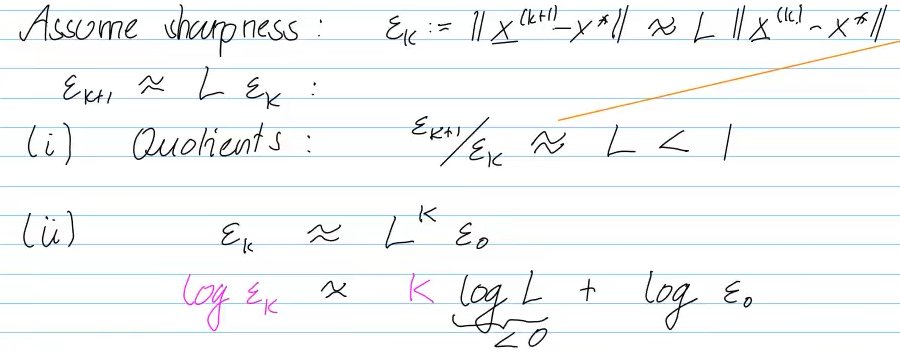 Assume sharpness : ε_k := ‖x^(k+1) − x*‖ ≈ L ‖x^(k) − x*‖
ε_k+1 ≈ L ε_k :
(i) Quotients : ε_k+1/ε_k ≈ L < 1
(ii) ε_k ≈ L^k ε_0
log ε_k ≈ k log L + log ε_0
< 0